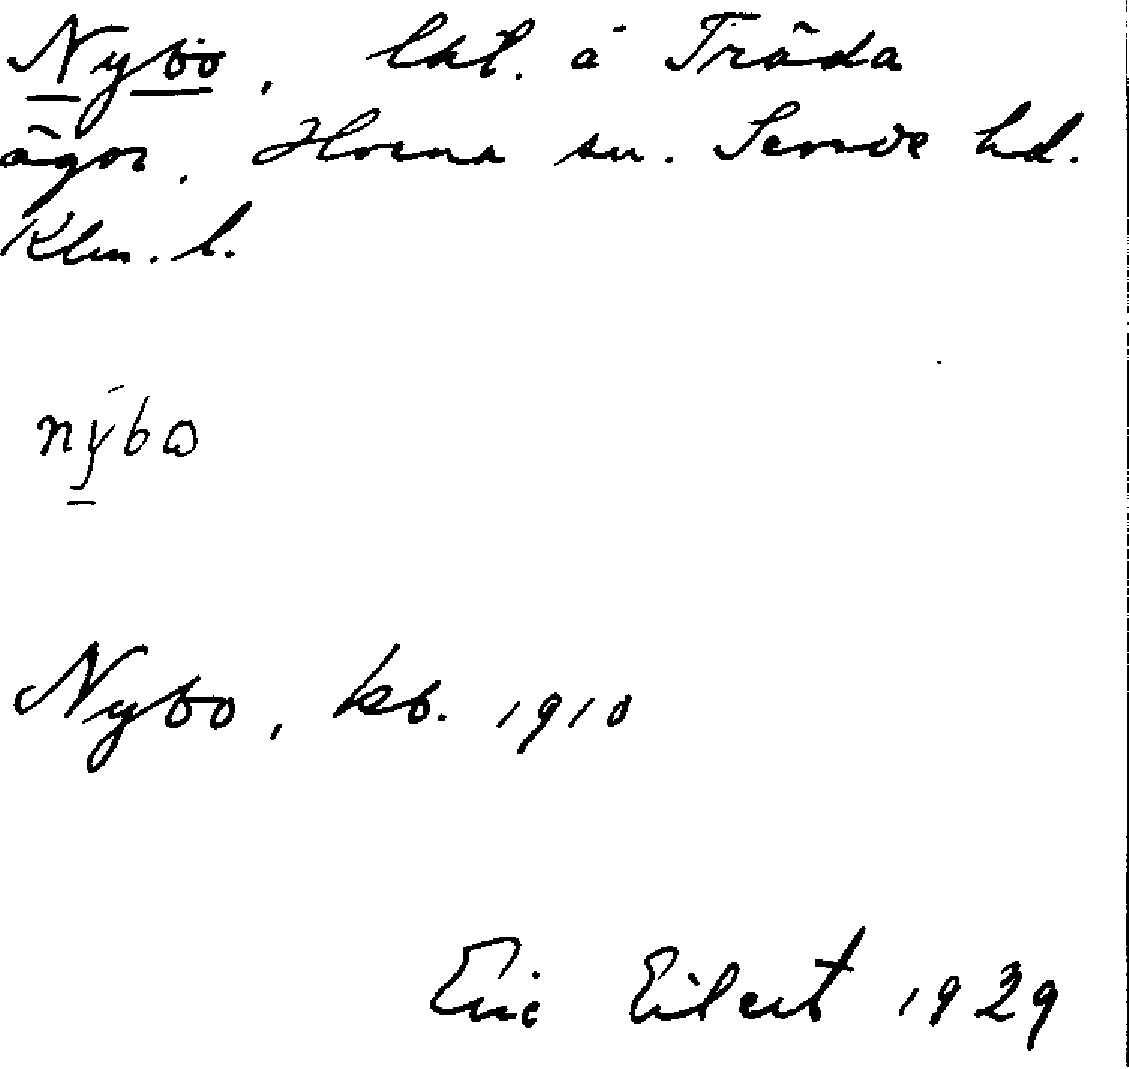 Nybo, lht. å Träda
ägor, Horna sn. Sevede hd.
Klm. l.
nýbɷ
Nybo, kb. 1910
Eric Eilert 1929